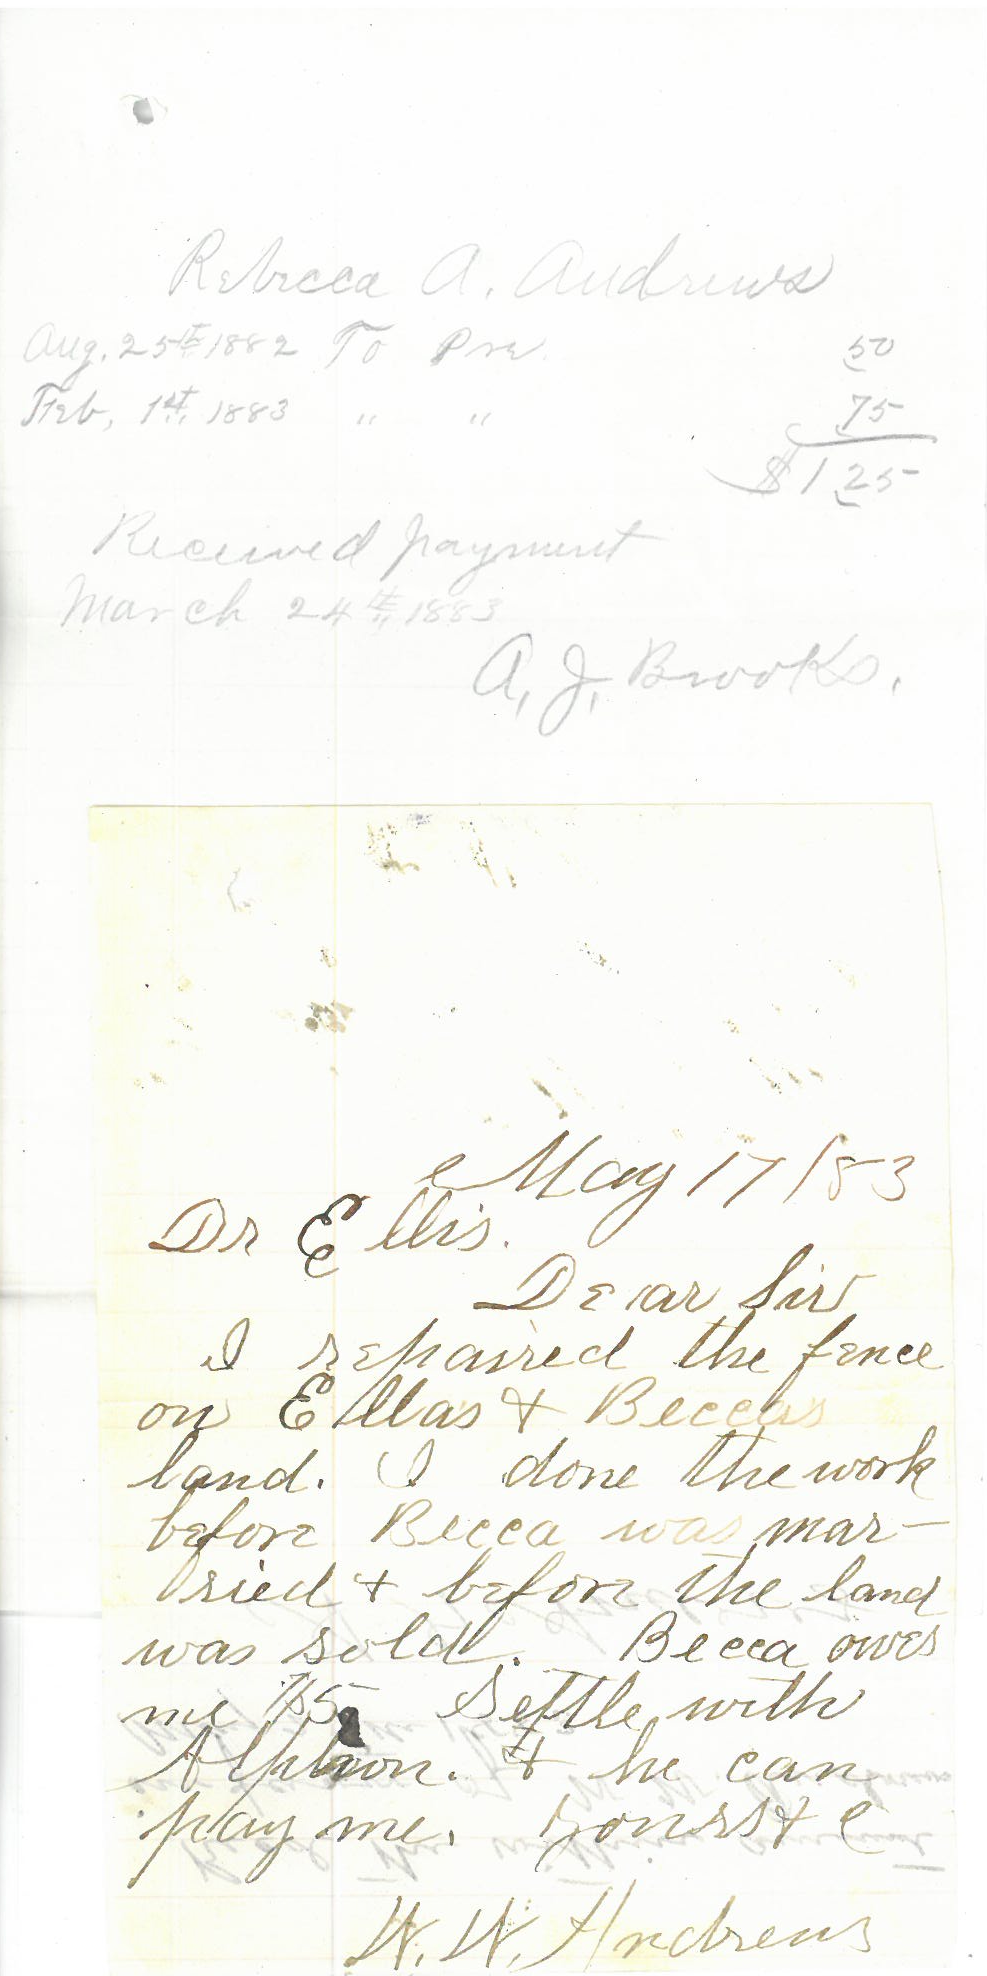 Rebecca A. Andrews
Aug. 25th 1882 To Pre 50
Feb, 1st, 1883 " " 75
$1 25
Received payment
March 24th, 1883
A, J, Brooks.
May 17/83
Dr Ellis.
Dear Sir
I repaired the fence
on Ellas & Beccas
land. I done the work
before Becca was mar-
ried & before the land
was sold. Becca owes
me $5 Settle with
& he can
pay me. Yours & c
W. W. Andrews